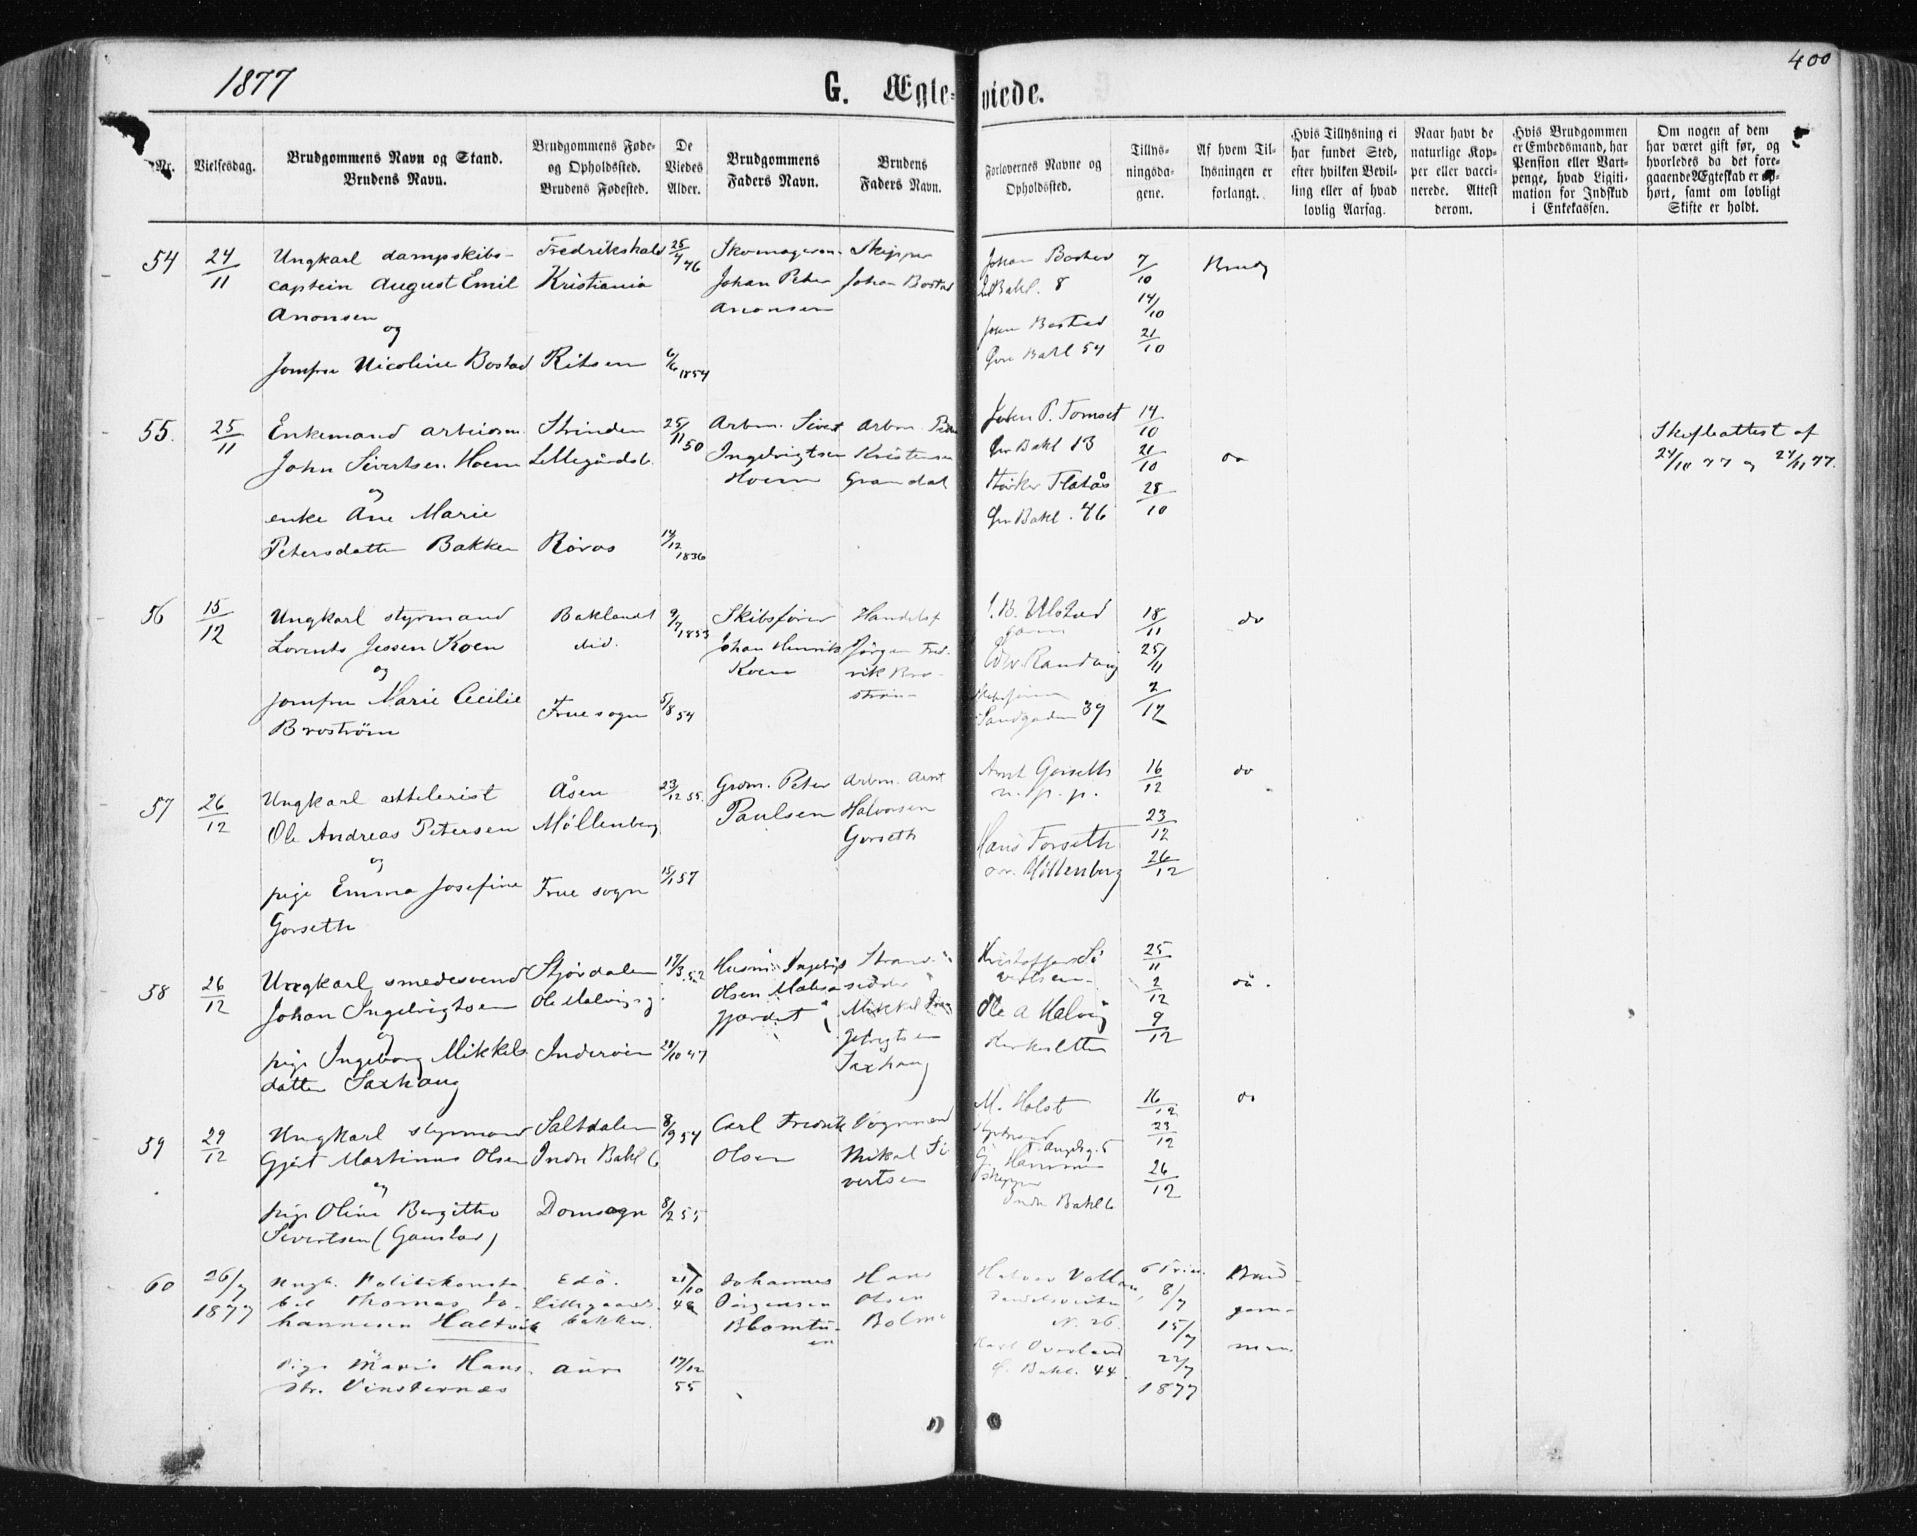 1877
G. Ægte-viede.
400
Nr.
Vielsesdag.
Brudgommens Navn og Stand.
Brudens Navn.
Brudgommens Føde-
og Opholdssted.
Brudens Fødested.
De
Viedes
Alder.
Brudgommens
Faders Navn.
Brudens
Faders Navn.
Forlovernes Navne og
Opholdssted.
Tillys-
ningsda-
gene.
Af hvem Til-
lysningen er
forlangt.
Hvis Tillysning ei
har fundet Sted,
efter hvilken Bevil-
ling eller af hvad
lovlig Aarsag.
Naar havt de
naturlige Kop-
per eller vacci-
nerede. Attest
derom.
Hvis Brudgommen
er Embedsmand, har
Pension eller Vart-
penge, hvad Ligiti-
mation for Indskud
i Enkekassen.
Om nogen af dem
har været gift før, og
hvorledes da det fore-
gaaende Ægteskab er op-
hørt, samt om lovligt
Skifte er holdt.
54
24/11
Ungkarl dampskibs-
captein August Emil
Anonsen
og
Jomfru Nicoline Bostad
Fredrikshald
Kristiania
Ritsem
25/4 46
6/6 1854
Skomagerm.
Johan Peter
Anonsen
Skipper
Johan Bostad
Johan Bostad
Bakl. 8
Bostad
Bakl 54
7/10
14/10
21/10
55.
25/11
Enkemand arbeidsm.
John Sivertsen Hoem
og
enke Ane Marie
Petersdatter Bakken
Strinden
Lillegårdsb.
Røros
25/11 50
14/12 1836
Arbm. Sivert
Ingebrigtsen
Hoem
Arbm. Peder
Kristensen
Grandal
John P. Tomset
Øvr Bakl 13
Flatås
Øvr Bakl. 46
14/10
21/10
28/10
do
Skifteattest af
24/10 77 og 24/11 77.
56
15/12
Ungkarl styrmand
Lorents Jessen Koen
og
jomfru Marie Cecilie
Broström
Baklandet
did.
Frue sogn
9/7 1853
5/8 54
Skibsfører
Johan Henrik
Koen
Handelsf
Jörgen Fred-
rik Bro-
ström
B. Ulstad
Randvig
Skibsfører
Sandgaden 39
18/11
25/11
2/12
do
57
26/12
Ungkarl attelerist
Ole Andreas Petersen
og
pige Emma Josefine
Gorseth
Åsen
Möllenberg
Frue sogn
23/12 55.
15/1 57
Grdm. Peter
Paulsen
Arbm. Arnt
Halvorsen
Gorseth
Arnt Gorseth
n. p. p.
Hans Forseth
Möllenberg
16/12
23/12
26/12
do
58
26/12
Ungkarl smedesvend
Johan Ingebrigtsen
og
pige Ingeborg Mikkels
datter Saxhaug
Stjördalen
Ole Malvigs g.
Inderöen
17/3 52
28/10 47
Husm. Ingebrigt
Olsen Malvas
gjærdet
Strand-
sidder
Mikkel In-
gebrigtsen
Saxhaug
Kristoffer Si
vertsen
Ole A Malvig
Kirkesletten
25/11
2/12
9/12
do.
59
29/12
Ungkarl styrmand
Gjert Martinus Olsen
og
pige Oline Bergitha
Sivertsen (Gaustad)
Saltdalen
Indre Bakl 6
Domsogn
8/9 54
8/2 55
Carl Fredrik
Olsen
Vognmand
Mikal Si
vertsen
M. Holst
styrmand
G. Hammer
skipper
Indr Bakl 6
16/12
23/12
26/12
do
60
26/7
1877
Ungk. Politikonsta-
bel Thomas Jo-
hannesen Haltvik
Pige Marie Hans-
dtr. Vinsternæs
Edö.
Lillegaards-
bakken.
Aure
21/10
48
17/12
55
Johannes
Jörgensen
Blomtu-
en
Hans
Olsen
Bolme
Halvor Vollan,
N. 26.
Karl Overland
Ø. Bakl. 44.
6 Trin.
8/7
15/7
22/7
1877
Brud-
gom-
men